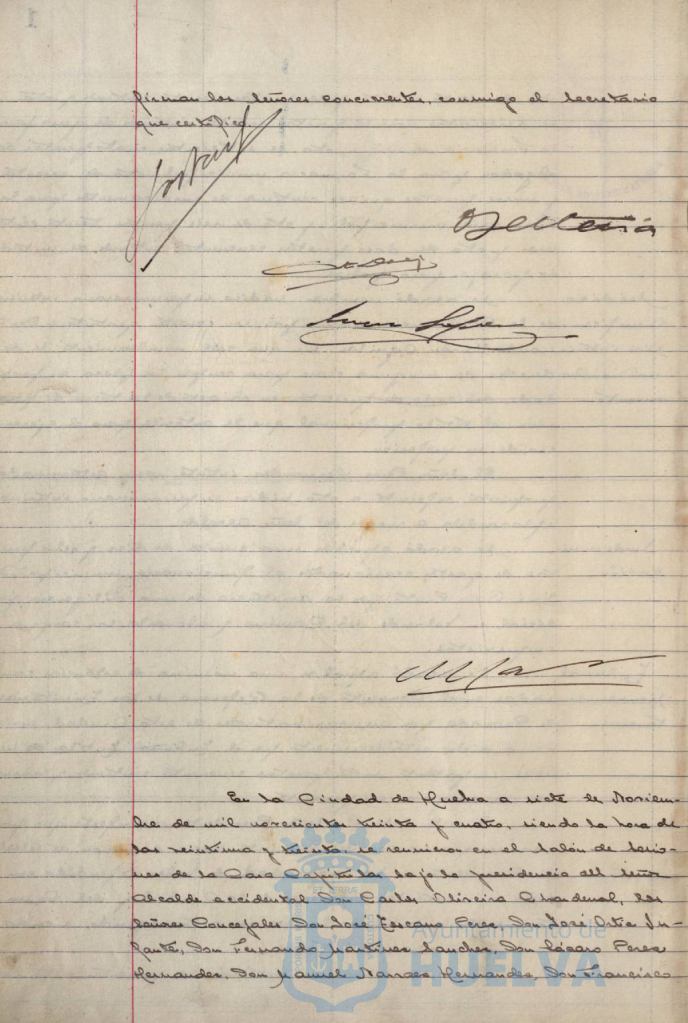 firman los señores concurrentes, conmigo el secretario
que certifico.
En la Ciudad de Huelva a siete de Noviem-
bre de mil novecientos treinta y cuatro, siendo la hora de
las veintiuna y treinta, se reunieron en el Salón de Sesio-
nes de la Casa Capitular bajo la presidencia del señor
Alcalde accidental Don Carlos Oliveira Chardenal, los
señores Concejales Don José Toscano Perez, Don José Ortiz In-
fante, Don Fernando Martinez Sanchez, Don Lázaro Perez
Hernandez, Don Manuel Narvaez Hernandez, Don Francisco
Ayuntamiento de
HUELVA